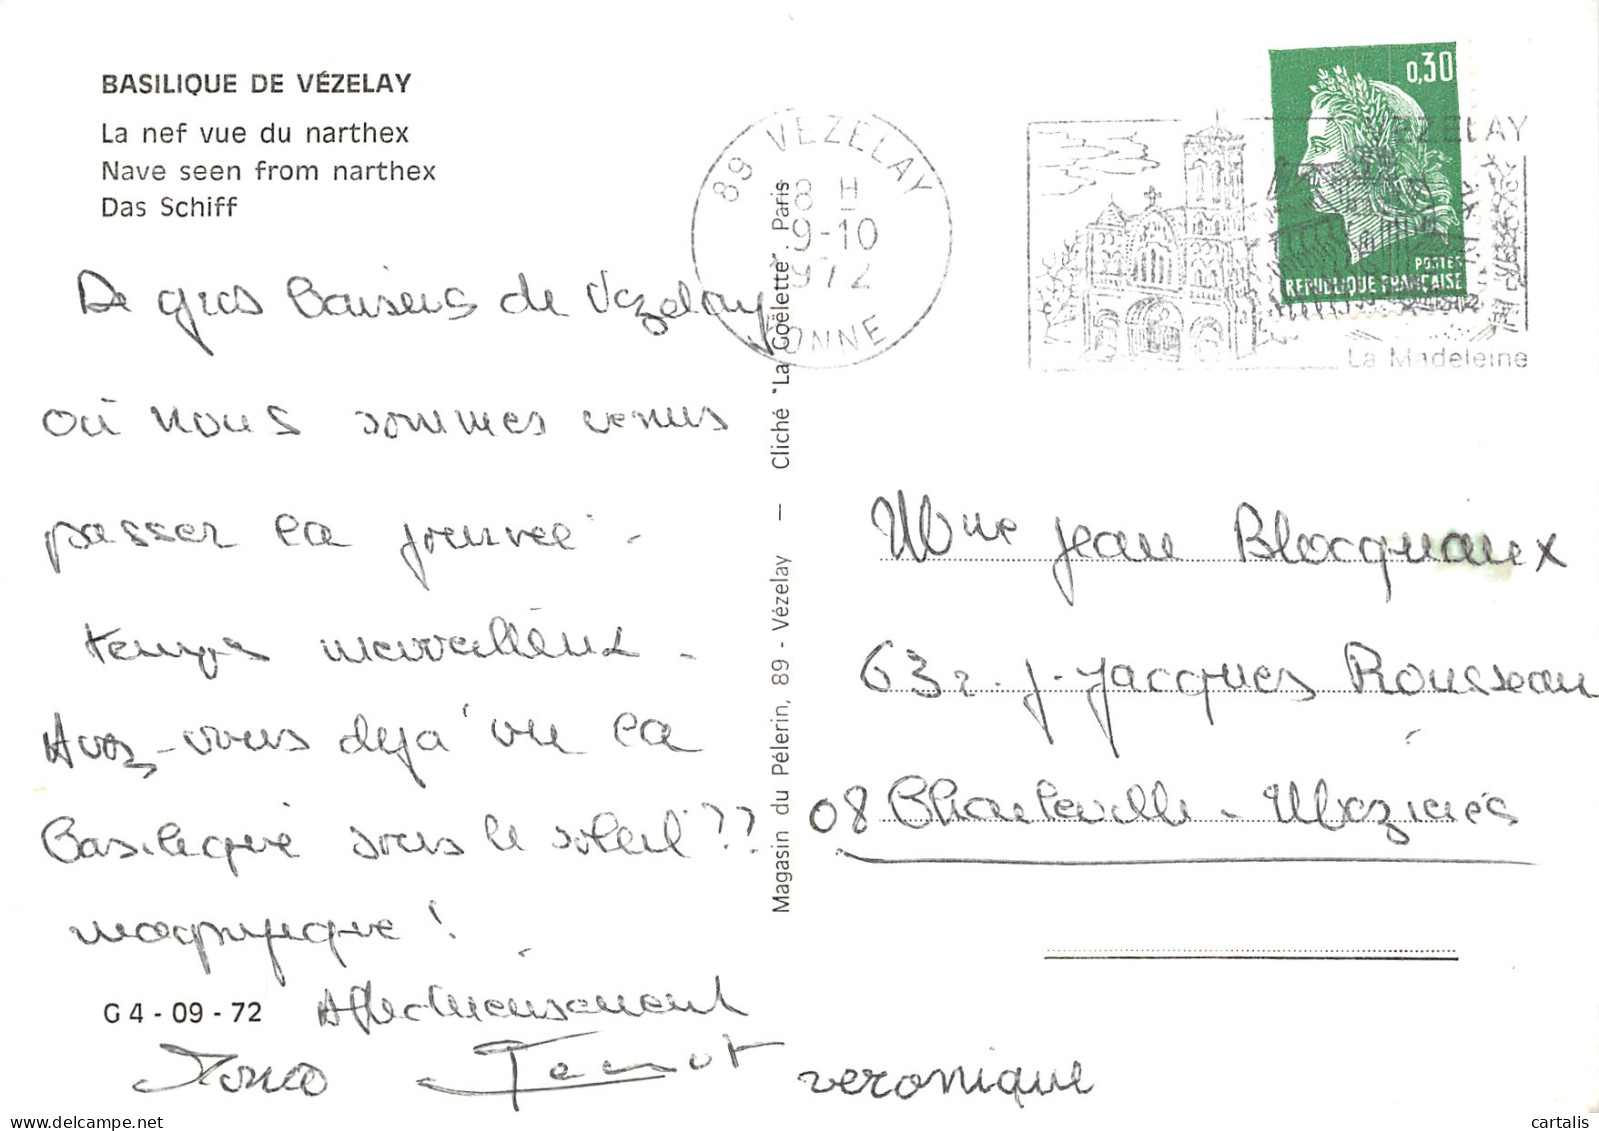 BASILIQUE DE VÉZELAY
La nef vue du narthex
Nave seen from narthex
Das Schiff
De gros baisers de Vezelay
où nous sommes venus
passer la journée.
temps merveilleux.
Avez-vous déjà vu la
Basilique sous le soleil ??
magnifique !
Affectueusement
veronique
G 4 - 09 - 72
Magasin du Pélerin, 89 - Vézelay — Cliché "La Goëlette". Paris
89 VEZELAY
8 H
9-10
1972
YONNE
VEZELAY
La Madeleine
0,30
POSTES
REPUBLIQUE FRANÇAISE
Mme Jean Blocquaux
63 r. J. Jacques Rousseau
08 Charleville-Mézières
cartalis